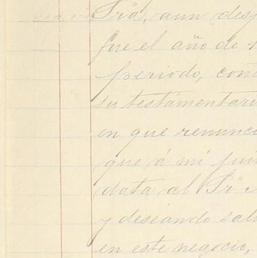 Sría, aun desp
fue el año de 1
periodo, con
su testamentari
en que renunc
que á mi jui
data al Sr
y deseando sal
en este negocio,